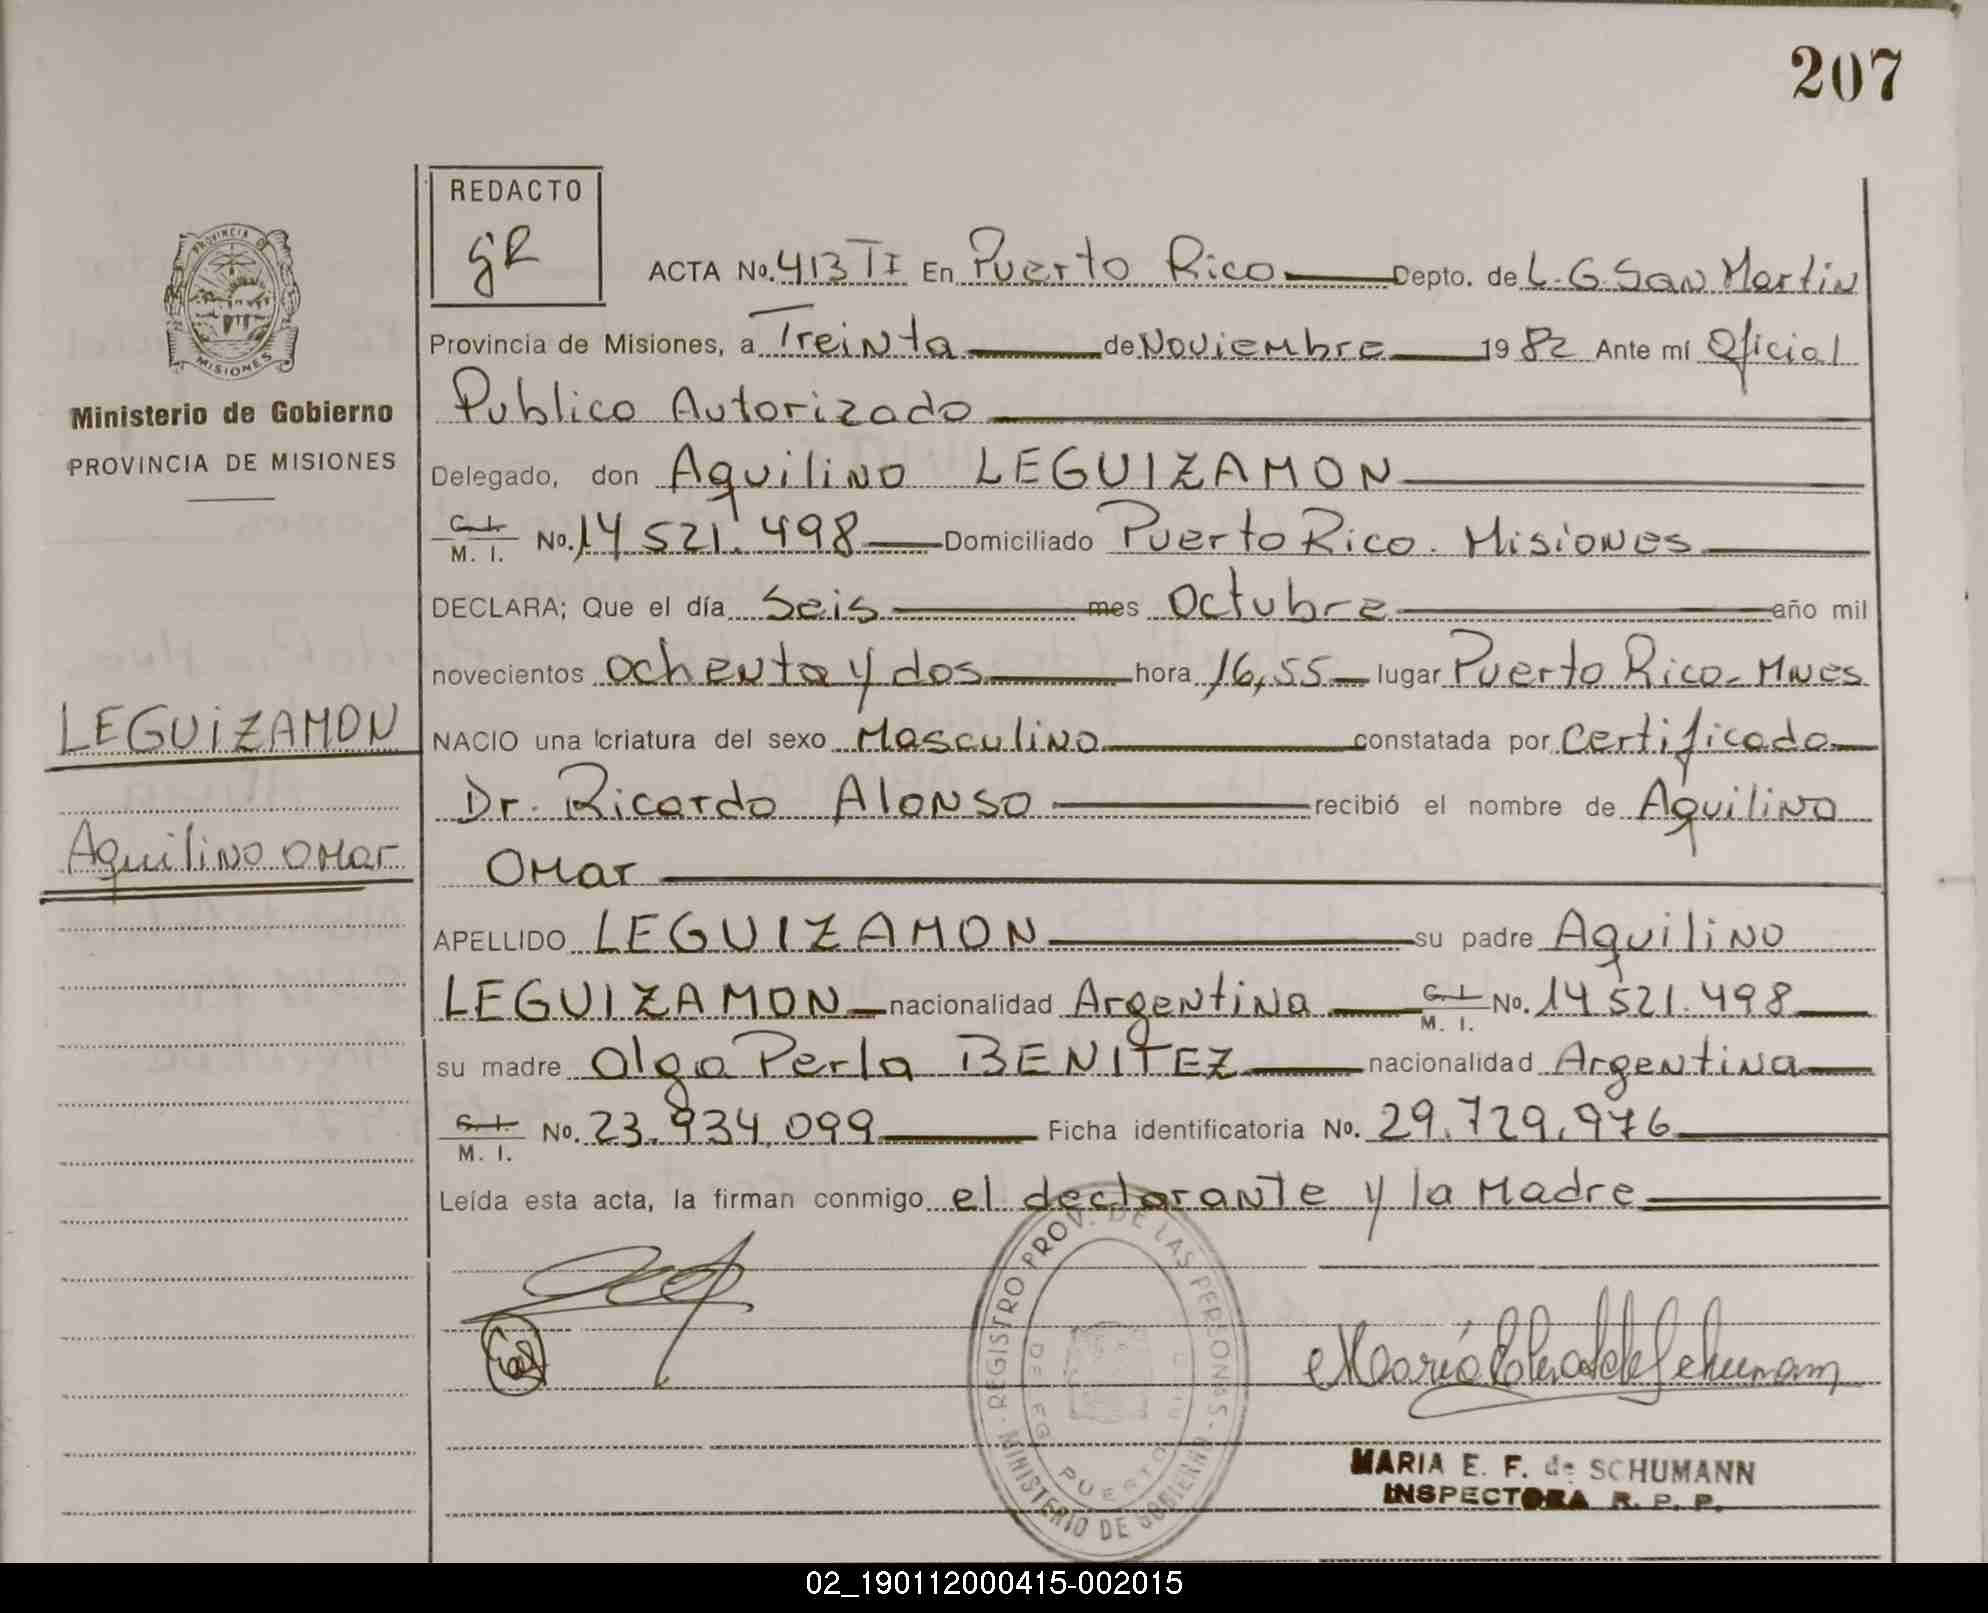 207
REDACTO
gR
ACTA No. 413 TI En Puerto Rico Depto. de L. G. San Martin
Provincia de Misiones, a Treinta de Noviembre 1982 Ante mí Oficial
Publico Autorizado
Delegado, don Aquilino LEGUIZAMON
C. I. M. I. No. 14 521.498 Domiciliado Puerto Rico. Misiones
DECLARA; Que el día Seis mes Octubre año mil
novecientos ochenta y dos hora 16,55 lugar Puerto Rico. Mnes
NACIO una criatura del sexo Masculino constatada por Certificado
Dr. Ricardo Alonso recibió el nombre de Aquilino
Omar
APELLIDO LEGUIZAMON su padre Aquilino
LEGUIZAMON nacionalidad Argentina C. I. M. I. No. 14 521.498
su madre Olga Perla BENITEZ nacionalidad Argentina
C. I. M. I. No. 23.934.099 Ficha identificatoria No. 29.729.976
Leída esta acta, la firman conmigo el declarante y la Madre
PROVINCIA DE
MISIONES
Ministerio de Gobierno
PROVINCIA DE MISIONES
LEGUIZAMON
Aquilino Omar
REGISTRO PROV. DE LAS PERSONAS
MINISTERIO DE GOBIERNO
DELEG
PUERTO
MARIA E. F. de SCHUMANN
INSPECTORA R. P. P.
02_190112000415-002015